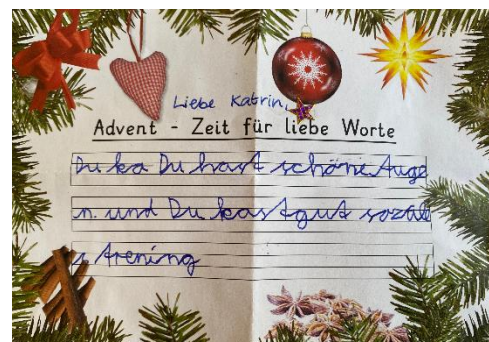 Liebe Katrin,
Advent - Zeit für liebe Worte
Du ka Du hast schöne Auge
n. und Du kastgut soziale
s trening